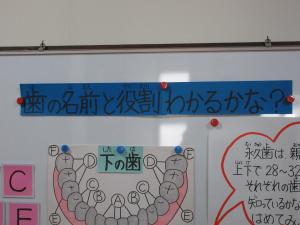 歯の名前と役割わかるかな?
下の歯
E E
D D
C C
B A A B
E
E
C
E
永久歯は 親
上下で 28~32
それぞれの歯
知っているかな
はめてみ